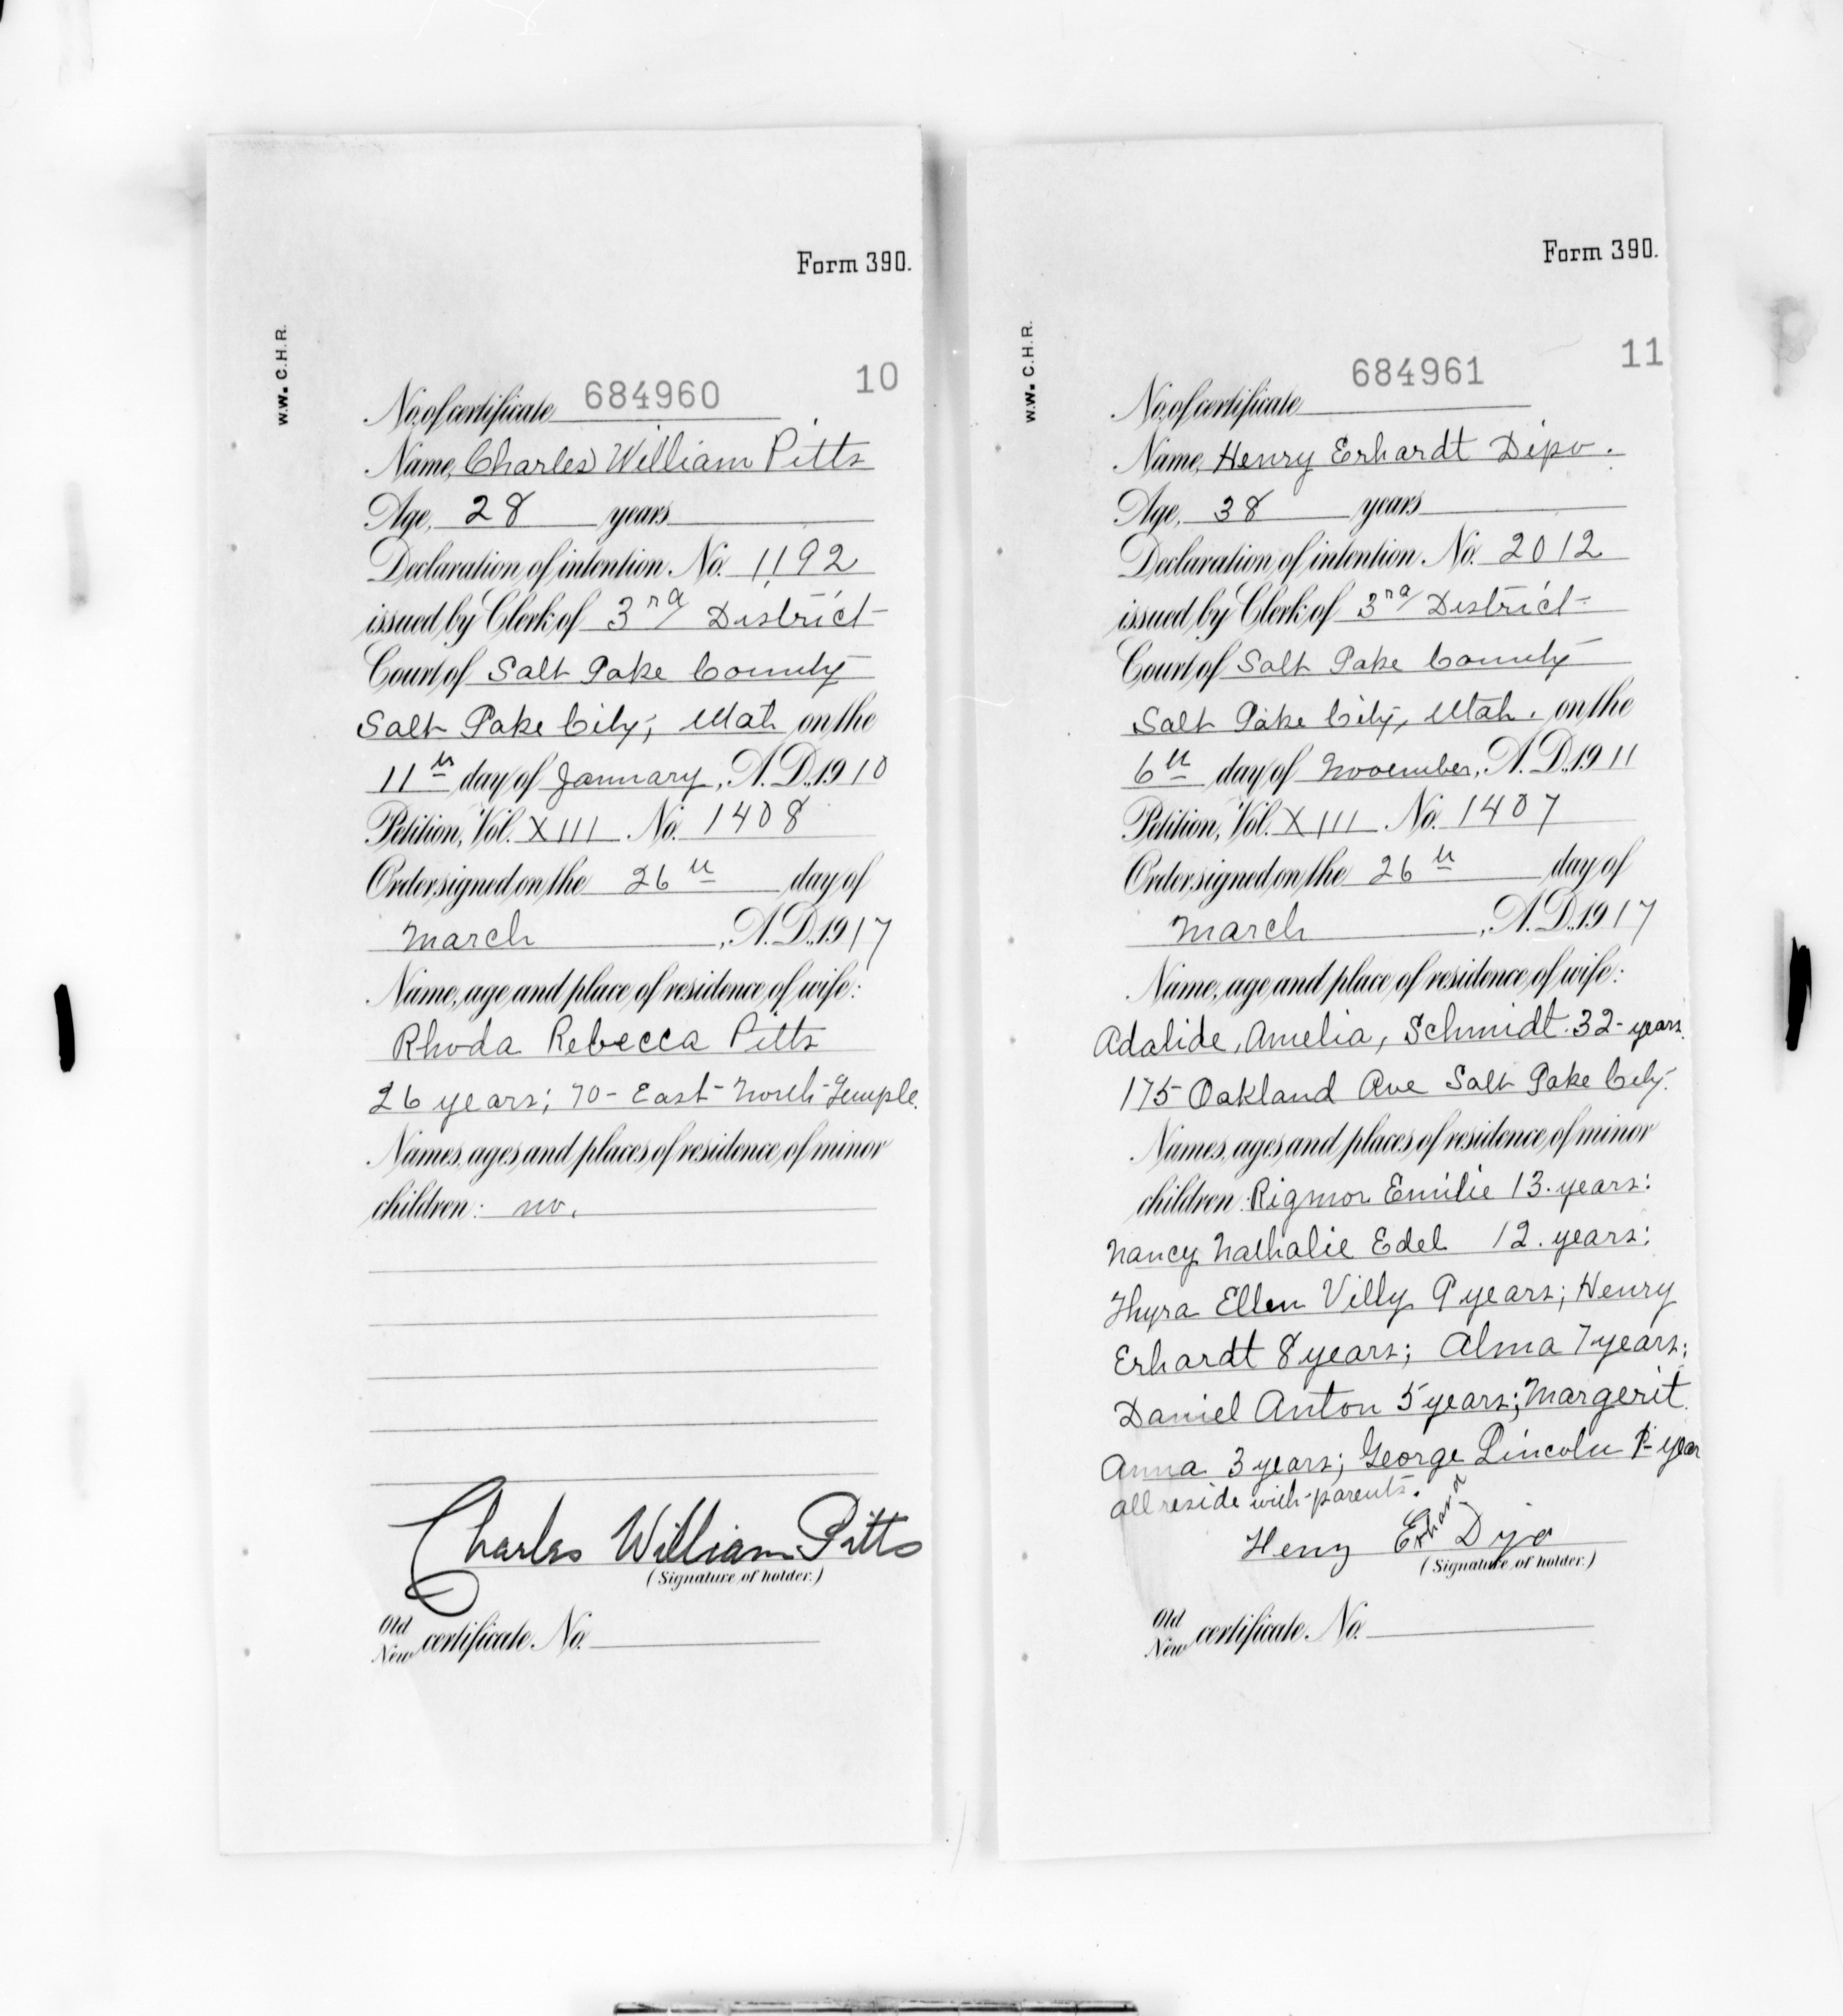 Form 390.
W.W. C.H.R.
10
No. of certificate 684960
Name, Charles William Pitts
Age, 28 years
Declaration of intention No. 1192
issued by Clerk of 3rd District
Court of Salt Lake County
Salt Lake City, Utah on the
11th day of January, A. D. 1910
Petition, Vol. XIII No. 1408
Order signed on the 26th day of
March, A. D. 1917
Name, age and place of residence of wife:
Rhoda Rebecca Pitts
26 years; 70 - East - North - Temple.
Names, ages and places of residence of minor
children: no.
Charles William Pitts
(Signature of holder.)
Old
New certificate No.
Form 390.
W.W. C.H.R.
11
No. of certificate 684961
Name, Henry Erhardt Dipo.
Age, 38 years
Declaration of intention No. 2012
issued by Clerk of 3rd District
Court of Salt Lake County
Salt Lake City, Utah. on the
6th day of November, A. D. 1911
Petition, Vol. XIII No. 1407
Order signed on the 26th day of
March, A. D. 1917
Name, age and place of residence of wife:
Adalide, Amelia, Schmidt. 32 - years.
175 Oakland Ave Salt Lake City.
Names, ages and places of residence of minor
children: Rigmor Emilie 13. years:
Nancy Nathalie Edel 12. years;
Thyra Ellen Villy 9 years; Henry
Erhardt 8 years; Alma 7 years;
Daniel Anton 5 years; Margerit
Anna 3 years; George Lincoln 1 - year
all reside with - parents.
Henry Erhard Dipo
(Signature of holder.)
Old
New certificate No.